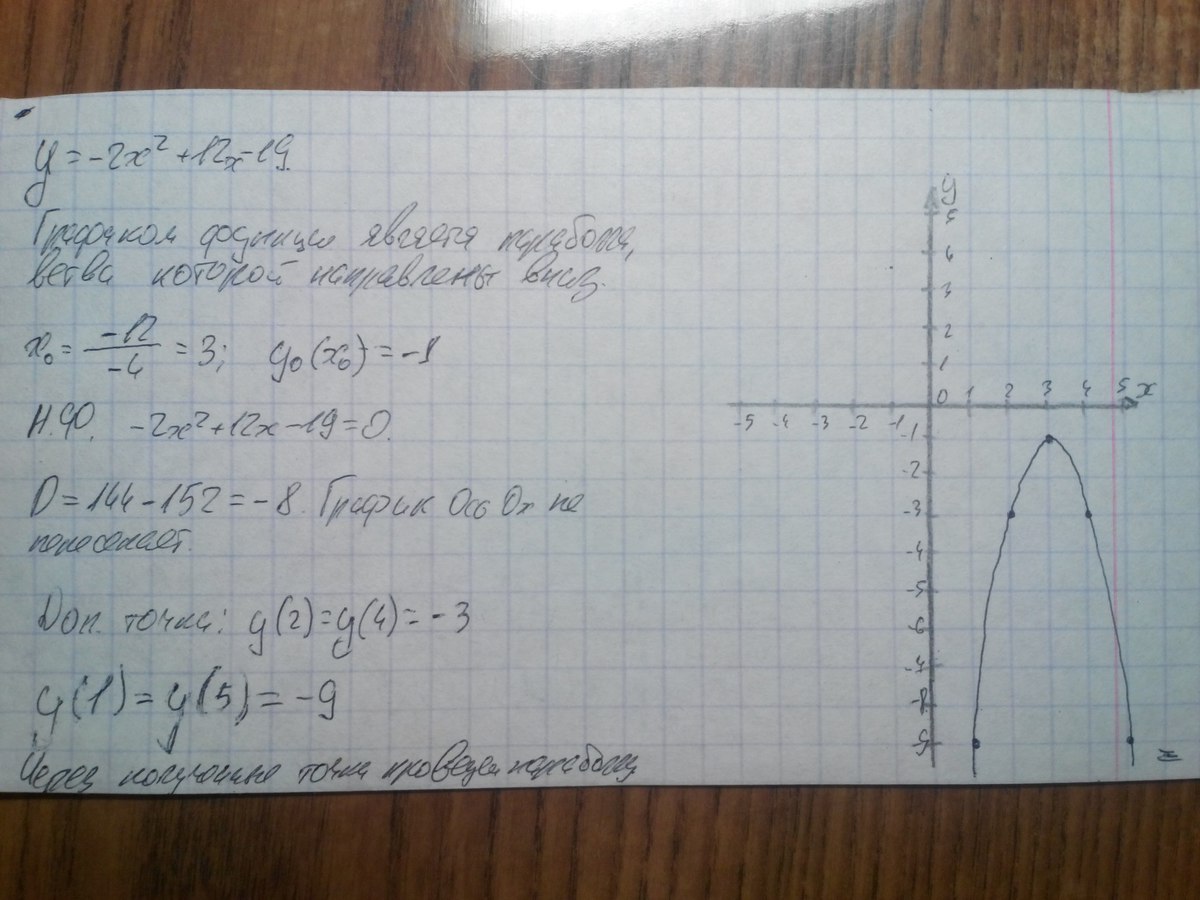 y = -2x² + 12x - 19.
Графиком функции является парабола,
ветви которой направлены вниз.
x₀ = -12/-4 = 3; y₀(x₀) = -1
Н.Ф. -2x² + 12x - 19 = 0.
D = 144 - 152 = -8. График Ось Ox не
пересекает.
Доп. точки: y(2) = y(4) = -3
y(1) = y(5) = -9
Через полученные точки проведем параболу
y
5
4
3
2
1
-5 -4 -3 -2 -1 0 1 2 3 4 5 x
-1
-2
-3
-4
-5
-6
-7
-8
-9